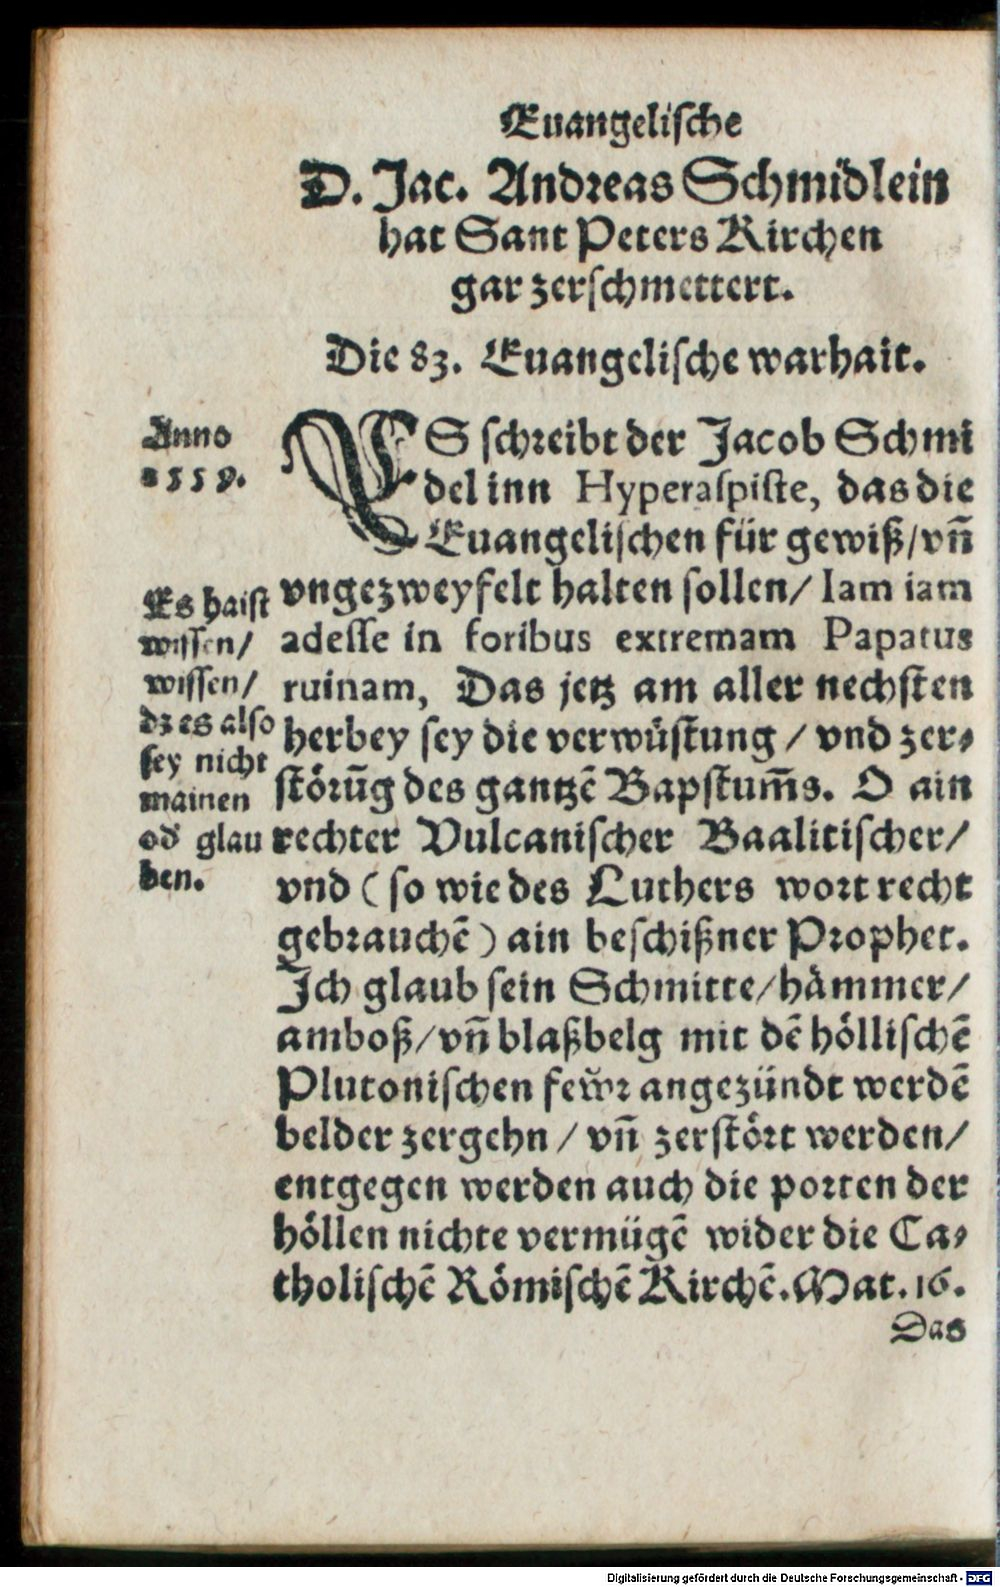 Euangelische
D. Jac. Andreas Schmidlein
hat Sant Peters Kirchen
gar zerschmettert.
Die 83. Euangelische warhait.
Anno
1559.
ES schreibt der Jacob Schmi
del inn Hyperaspiste, das die
Euangelischen für gewiß/vñ
vngezweyfelt halten sollen/ Iam iam
adesse in foribus extremam Papatus
ruinam, Das jetz am aller nechsten
herbey sey die verwüstung / vnd zer⸗
störũg des gantzẽ Bapstum̃s. O ain
rechter Vulcanischer Baalitischer/
vnd (so wie des Luthers wort recht
gebrauchẽ) ain beschißner Prophet.
Ich glaub sein Schmitte/hämmer/
amboß/vñ blaßbelg mit dẽ höllischẽ
Plutonischen fewr angezündt werdẽ
belder zergehn / vñ zerstört werden/
entgegen werden auch die porten der
höllen nichte vermügẽ wider die Ca⸗
tholischẽ Römischẽ Kirchẽ. Mat. 16.
Das
Es haist
wissen/
wissen/
dz es also
sey nicht
mainen
od glau
ben.
Digitalisierung gefördert durch die Deutsche Forschungsgemeinschaft - DFG